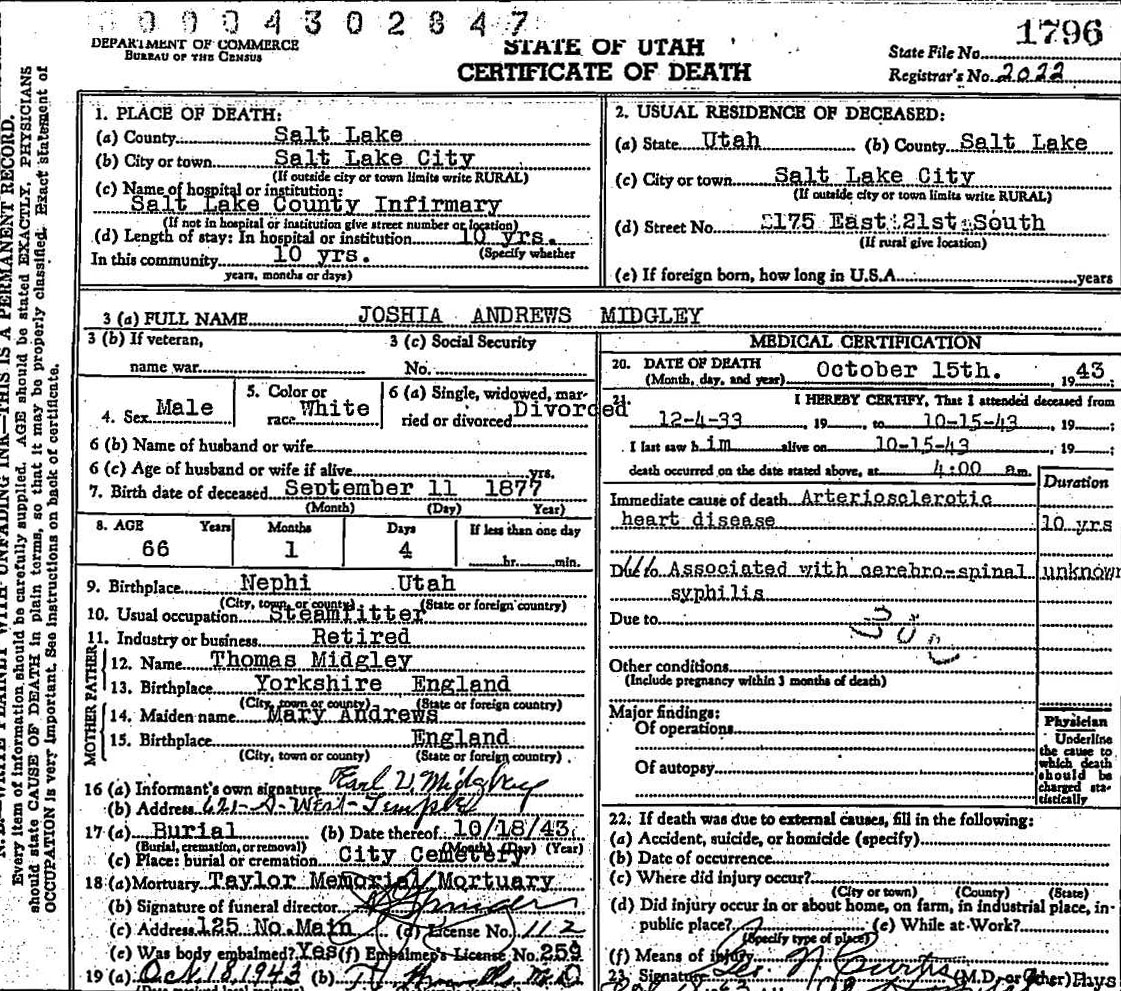 0004302847
1796
DEPARTMENT OF COMMERCE
BUREAU OF THE CENSUS
STATE OF UTAH
CERTIFICATE OF DEATH
State File No.
Registrar's No. 2022
N. B.—WRITE PLAINLY WITH UNFADING INK—THIS IS A PERMANENT RECORD.
Every item of information should be carefully supplied. AGE should be stated EXACTLY, PHYSICIANS
should state CAUSE OF DEATH in plain terms, so that it may be properly classified. Exact statement of
OCCUPATION is very important. See instructions on back of certificate.
1. PLACE OF DEATH:
(a) County Salt Lake
(b) City or town Salt Lake City
(If outside city or town limits write RURAL)
(c) Name of hospital or institution:
Salt Lake County Infirmary
(If not in hospital or institution give street number or location)
(d) Length of stay: In hospital or institution 10 yrs.
(Specify whether
In this community 10 yrs.
years, months or days)
2. USUAL RESIDENCE OF DECEASED:
(a) State Utah (b) County Salt Lake
(c) City or town Salt Lake City
(If outside city or town limits write RURAL)
(d) Street No. 2175 East 21st South
(If rural give location)
(e) If foreign born, how long in U.S.A. years
3 (a) FULL NAME JOSHIA ANDREWS MIDGLEY
3 (b) If veteran,
name war
3 (c) Social Security
No.
4. Sex Male
5. Color or
race White
6 (a) Single, widowed, mar-
ried or divorced Divorced
6 (b) Name of husband or wife
6 (c) Age of husband or wife if alive yrs.
7. Birth date of deceased September 11 1877
(Month) (Day) Year)
8. AGE Years Months Days If less than one day
66 1 4 hr. min.
9. Birthplace Nephi Utah
(City, town, or county) (State or foreign country)
10. Usual occupation Steamfitter
11. Industry or business Retired
FATHER
12. Name Thomas Midgley
13. Birthplace Yorkshire England
(City, town or county) (State or foreign country)
MOTHER
14. Maiden name Mary Andrews
15. Birthplace England
(City, town or county) (State or foreign country)
16 (a) Informant's own signature Karl V. Midgley
(b) Address 621-S-West-Temple
17 (a) Burial (b) Date thereof 10/18/43
(Burial, cremation, or removal) (Month) (Day) (Year)
(c) Place: burial or cremation City Cemetery
18 (a) Mortuary Taylor Memorial Mortuary
(b) Signature of funeral director
(c) Address 125 No. Main (d) License No. 112
(e) Was body embalmed? Yes (f) Embalmer's License No. 259
19 (a) Oct. 18, 1943 (b) M.D
MEDICAL CERTIFICATION
20. DATE OF DEATH
(Month, day, and year) October 15th. , 19 43
21. I HEREBY CERTIFY, That I attended deceased from
12-4-33 , 19 , to 10-15-43 , 19 ;
I last saw him alive on 10-15-43 , 19 ;
death occurred on the date stated above, at 4:00 a.m.
Duration
Immediate cause of death Arteriosclerotic
heart disease 10 yrs
Due to Associated with cerebro-spinal unknown
syphilis
Due to
Other conditions
(Include pregnancy within 3 months of death)
Major findings:
Of operations
Of autopsy
Physician
Underline
the cause to
which death
should be
charged sta-
tistically
22. If death was due to external causes, fill in the following:
(a) Accident, suicide, or homicide (specify)
(b) Date of occurrence
(c) Where did injury occur?
(City or town) (County) (State)
(d) Did injury occur in or about home, on farm, in industrial place, in-
public place? (e) While at Work?
(Specify type of place)
(f) Means of injury
23. Signature Geo. N. Curtis (M.D. or Other) Phys